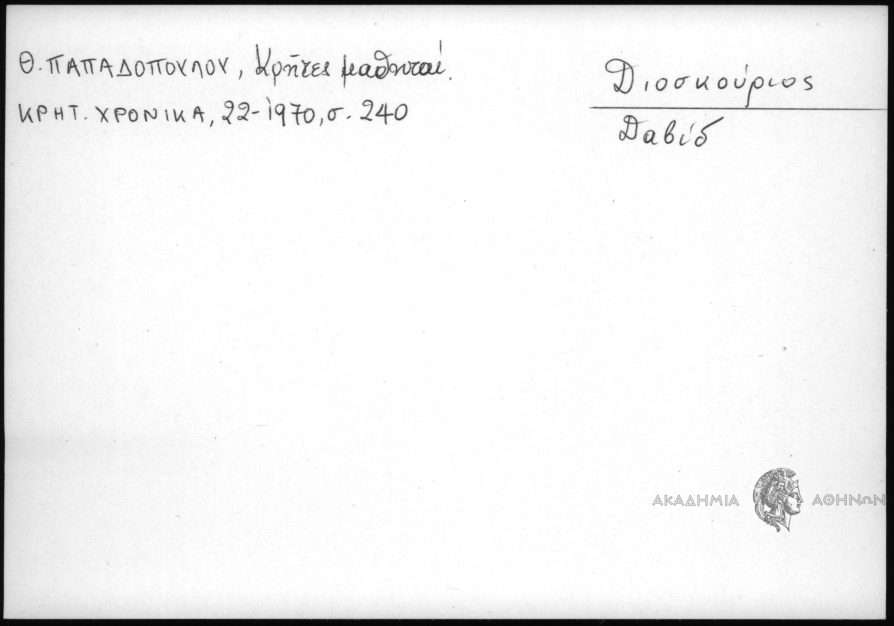 Θ. ΠΑΠΑΔΟΠΟΥΛΟΥ, Κρῆτες μαθηταί.
ΚΡΗΤ. ΧΡΟΝΙΚΑ, 22-1970, σ. 240
Διοσκούριος
Δαβίδ
ΑΚΑΔΗΜΙΑ ΑΘΗΝΩΝ